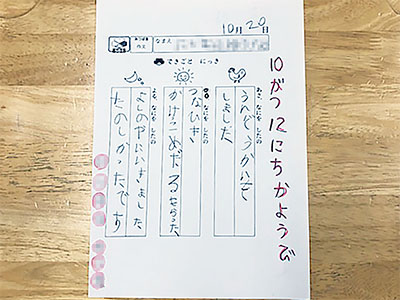 10月20日
なまえ
できごと にっき
10がつ12にちかようび
あさ なにを したの
うんどうかいを
しました
ひる なにを したの
つなひき
かけっこめだるもらった
よる なにを したの
よしのやにいきました
たのしかったです